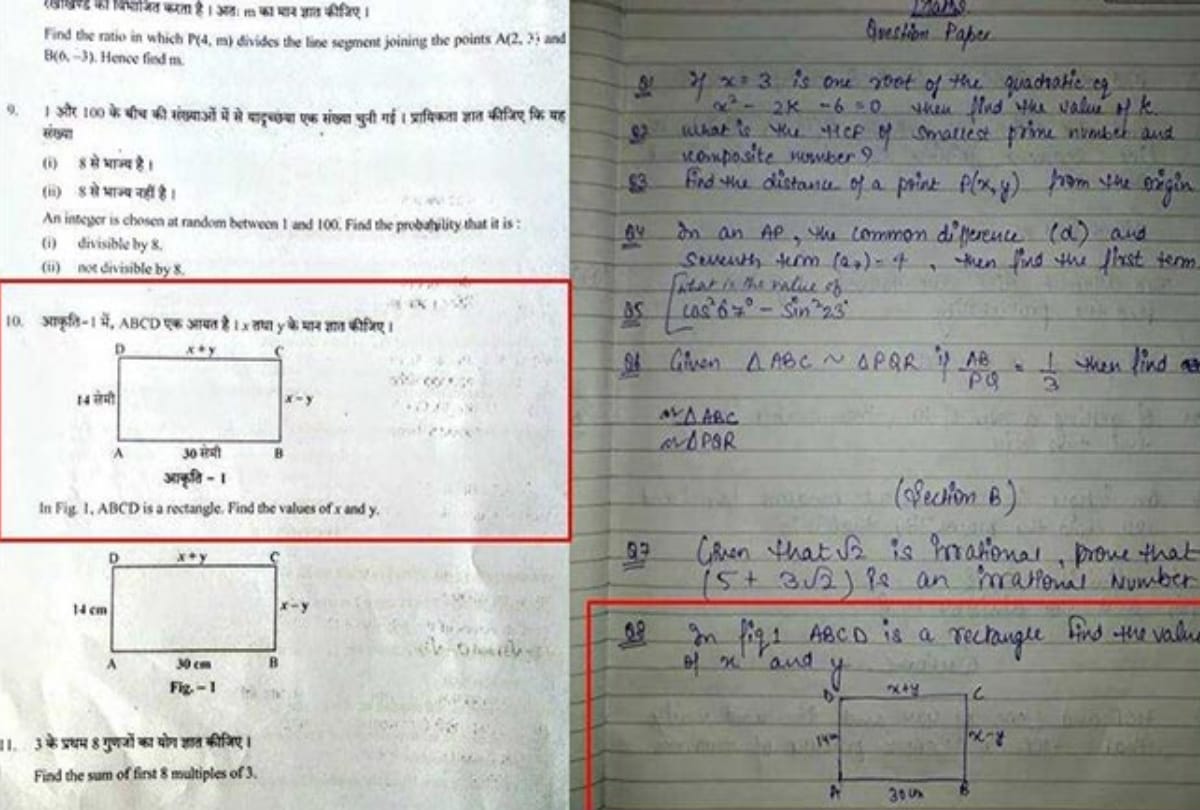 रेखाखण्ड को विभाजित करता है । अतः m का मान ज्ञात कीजिए ।
Find the ratio in which P(4, m) divides the line segment joining the points A(2, 3) and
B(6, –3). Hence find m.
9. 1 और 100 के बीच की संख्याओं में से यादृच्छया एक संख्या चुनी गई । प्रायिकता ज्ञात कीजिए कि यह
संख्या
(i) 8 से भाज्य है ।
(ii) 8 से भाज्य नहीं है ।
An integer is chosen at random between 1 and 100. Find the probability that it is :
(i) divisible by 8.
(ii) not divisible by 8.
10. आकृति-1 में, ABCD एक आयत है । x तथा y के मान ज्ञात कीजिए ।
D x + y C
14 सेमी x – y
A 30 सेमी B
आकृति – 1
In Fig. 1, ABCD is a rectangle. Find the values of x and y.
D x + y C
14 cm x – y
A 30 cm B
Fig. – 1
11. 3 के प्रथम 8 गुणजों का योग ज्ञात कीजिए ।
Find the sum of first 8 multiples of 3.
Maths
Question Paper
Q1 If x = 3 is one root of the quadratic eq
x² – 2k – 6 = 0 then find the value of k.
Q2 what is the HCF of smallest prime number and
composite number ?
Q3 Find the distance of a point P(x, y) from the origin
Q4 In an AP, the common difference (d) and
Seventh term (a₇) = 4, then find the first term
What is the value of
Q5 cos²67° – Sin²23°
Q6 Given △ABC ~ △PQR if AB/PQ = 1/3 then find
ar △ABC
ar △PQR
(Section B)
Q7 Given that √2 is irrational, prove that
(5 + 3√2) is an irrational Number
Q8 In fig 1 ABCD is a rectangle find the value
of x and y
D x+y C
14 x-y
A 30 cm B